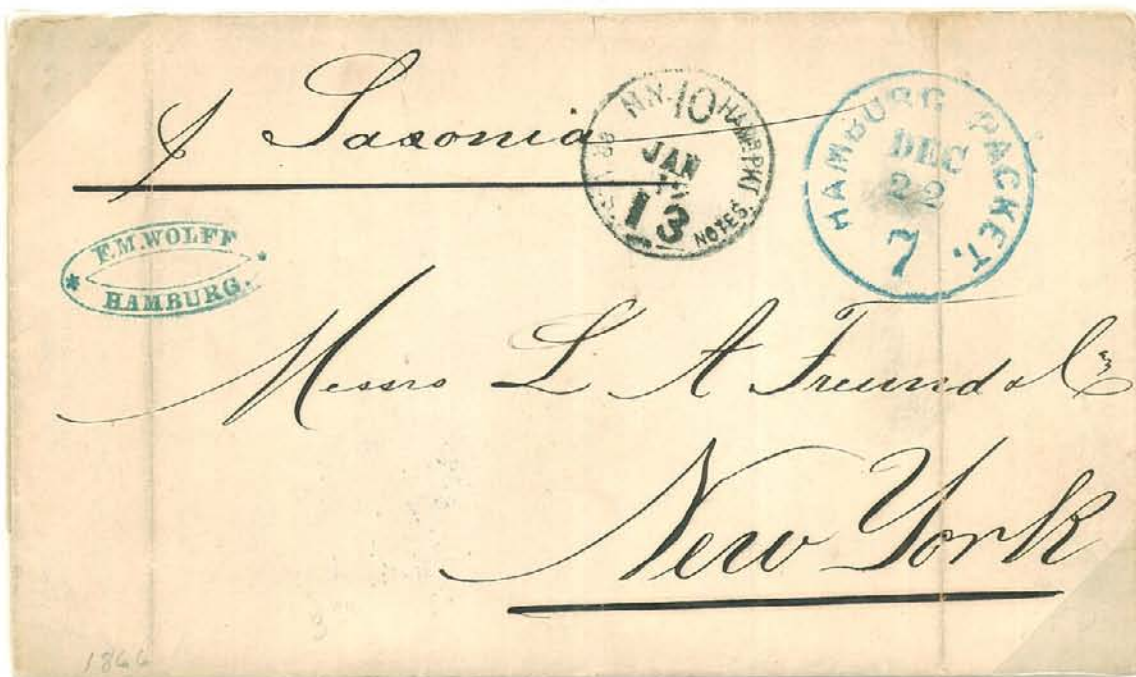 p Saxonia
N.Y. 10 HAMB. PKT.
JAN
13
NOTES
HAMBURG PACKET.
DEC
22
7
F.M. WOLFF
* *
HAMBURG.
Messrs L A Freund & Co
New York
1866